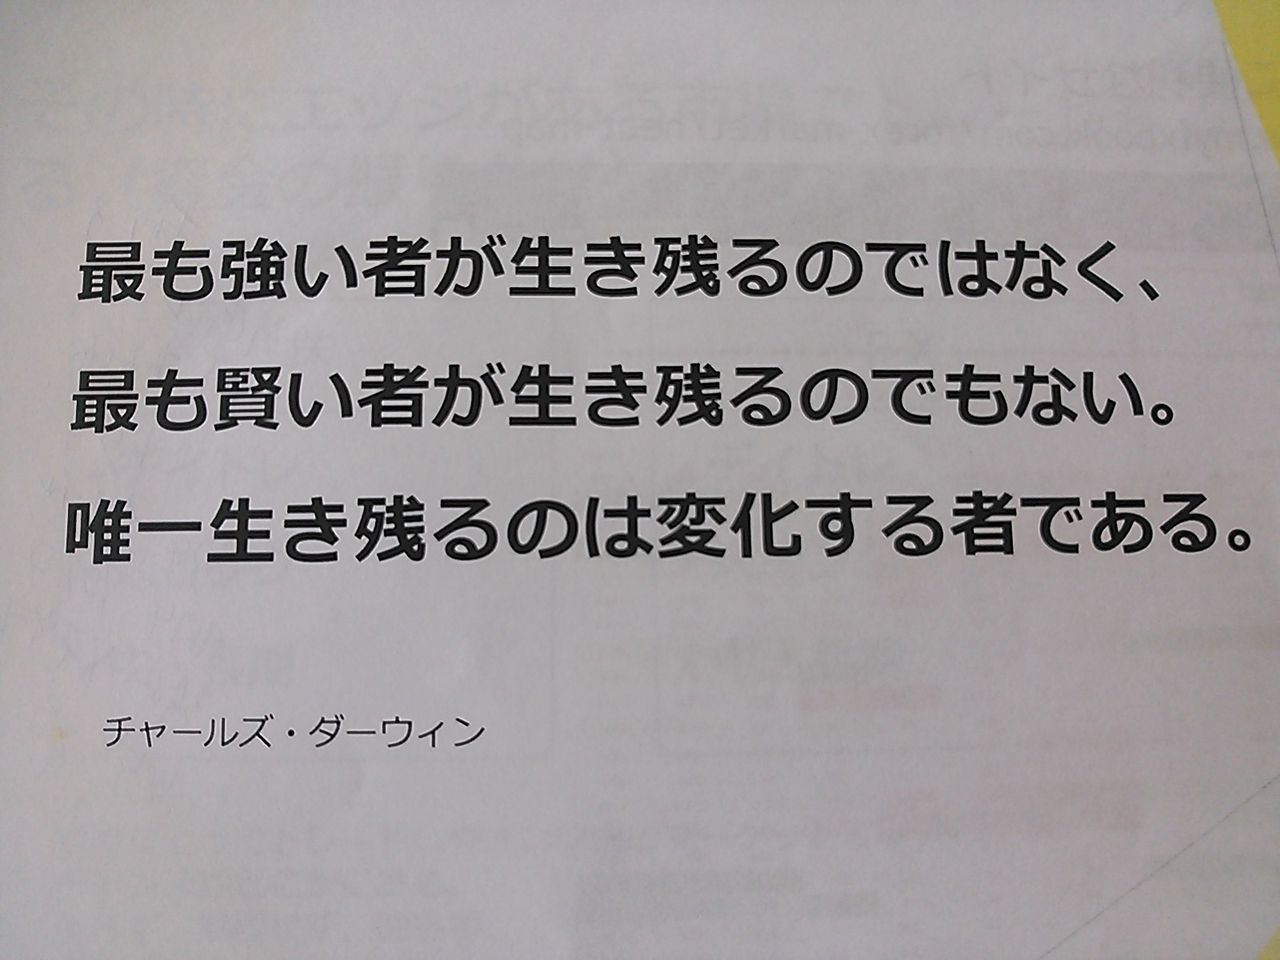 最も強い者が生き残るのではなく、
最も賢い者が生き残るのでもない。
唯一生き残るのは変化する者である。
チャールズ・ダーウィン